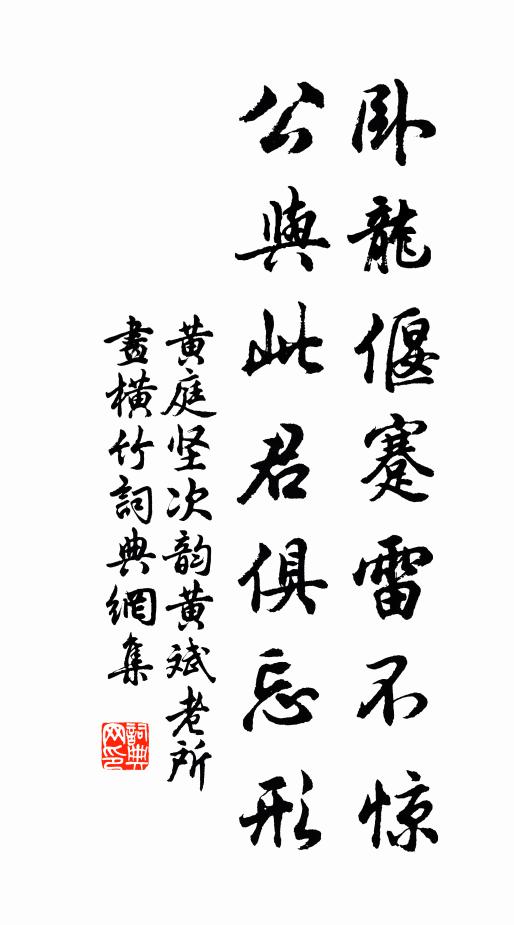 卧龍偃蹇雷不惊
公與此君俱忘形
黄庭坚次韵黄斌老所
畫橫竹詞典網集
詞典网印